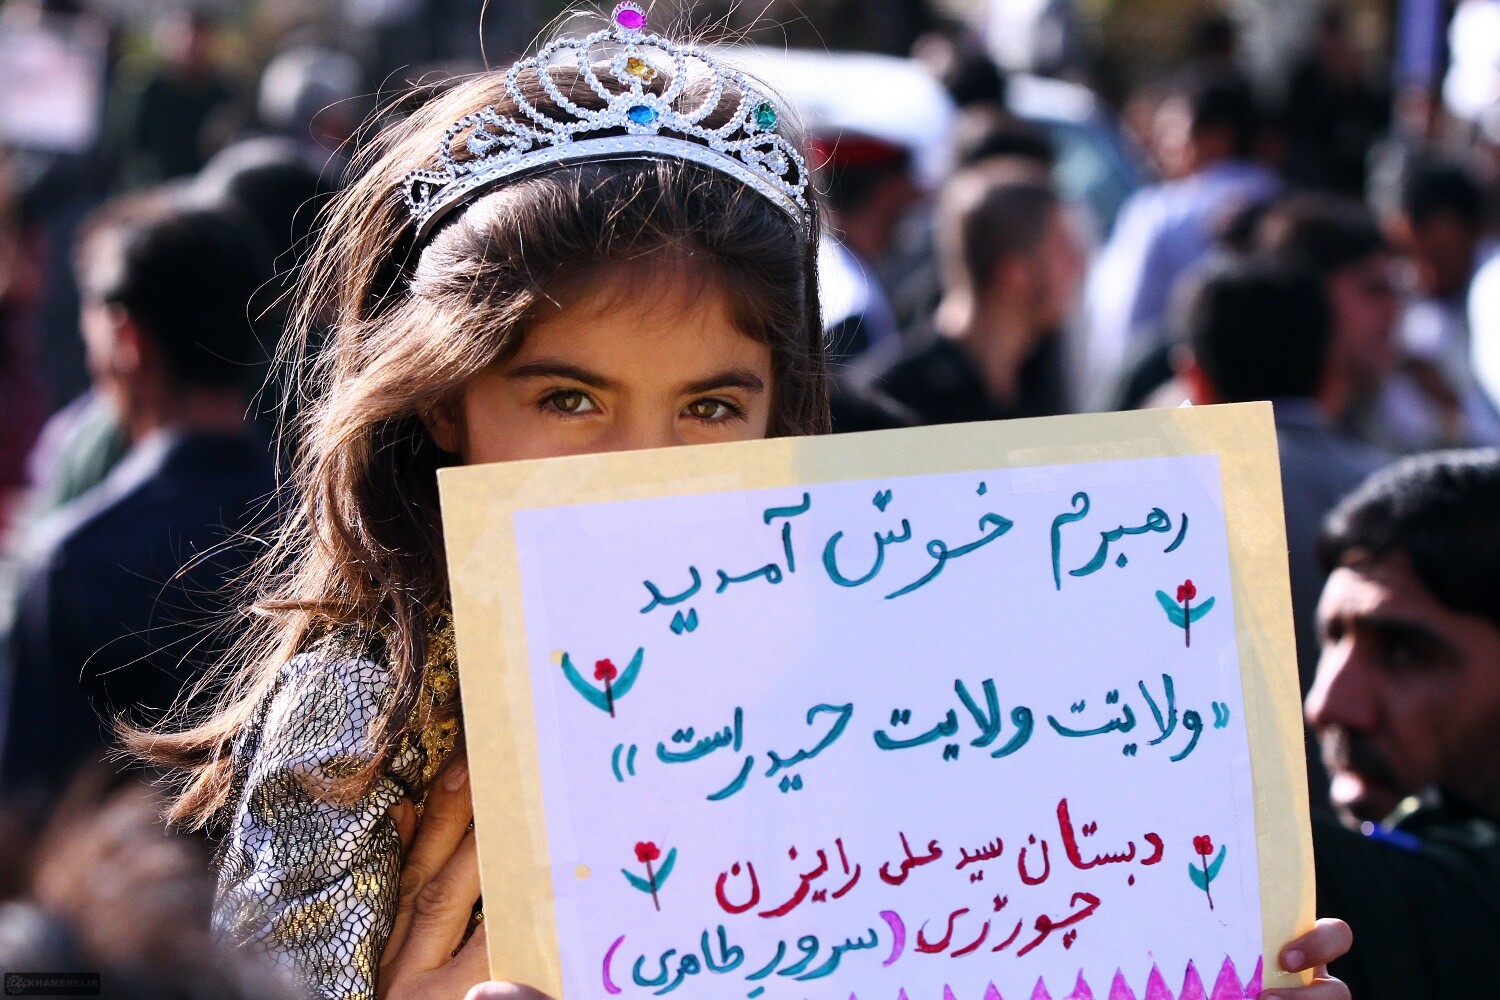 رهبرم خوش آمدید
«ولایتت ولایت حیدر است»
دبستان سید علی رایزن
چورزی (سرور طاهری)
KHAMENEI.IR